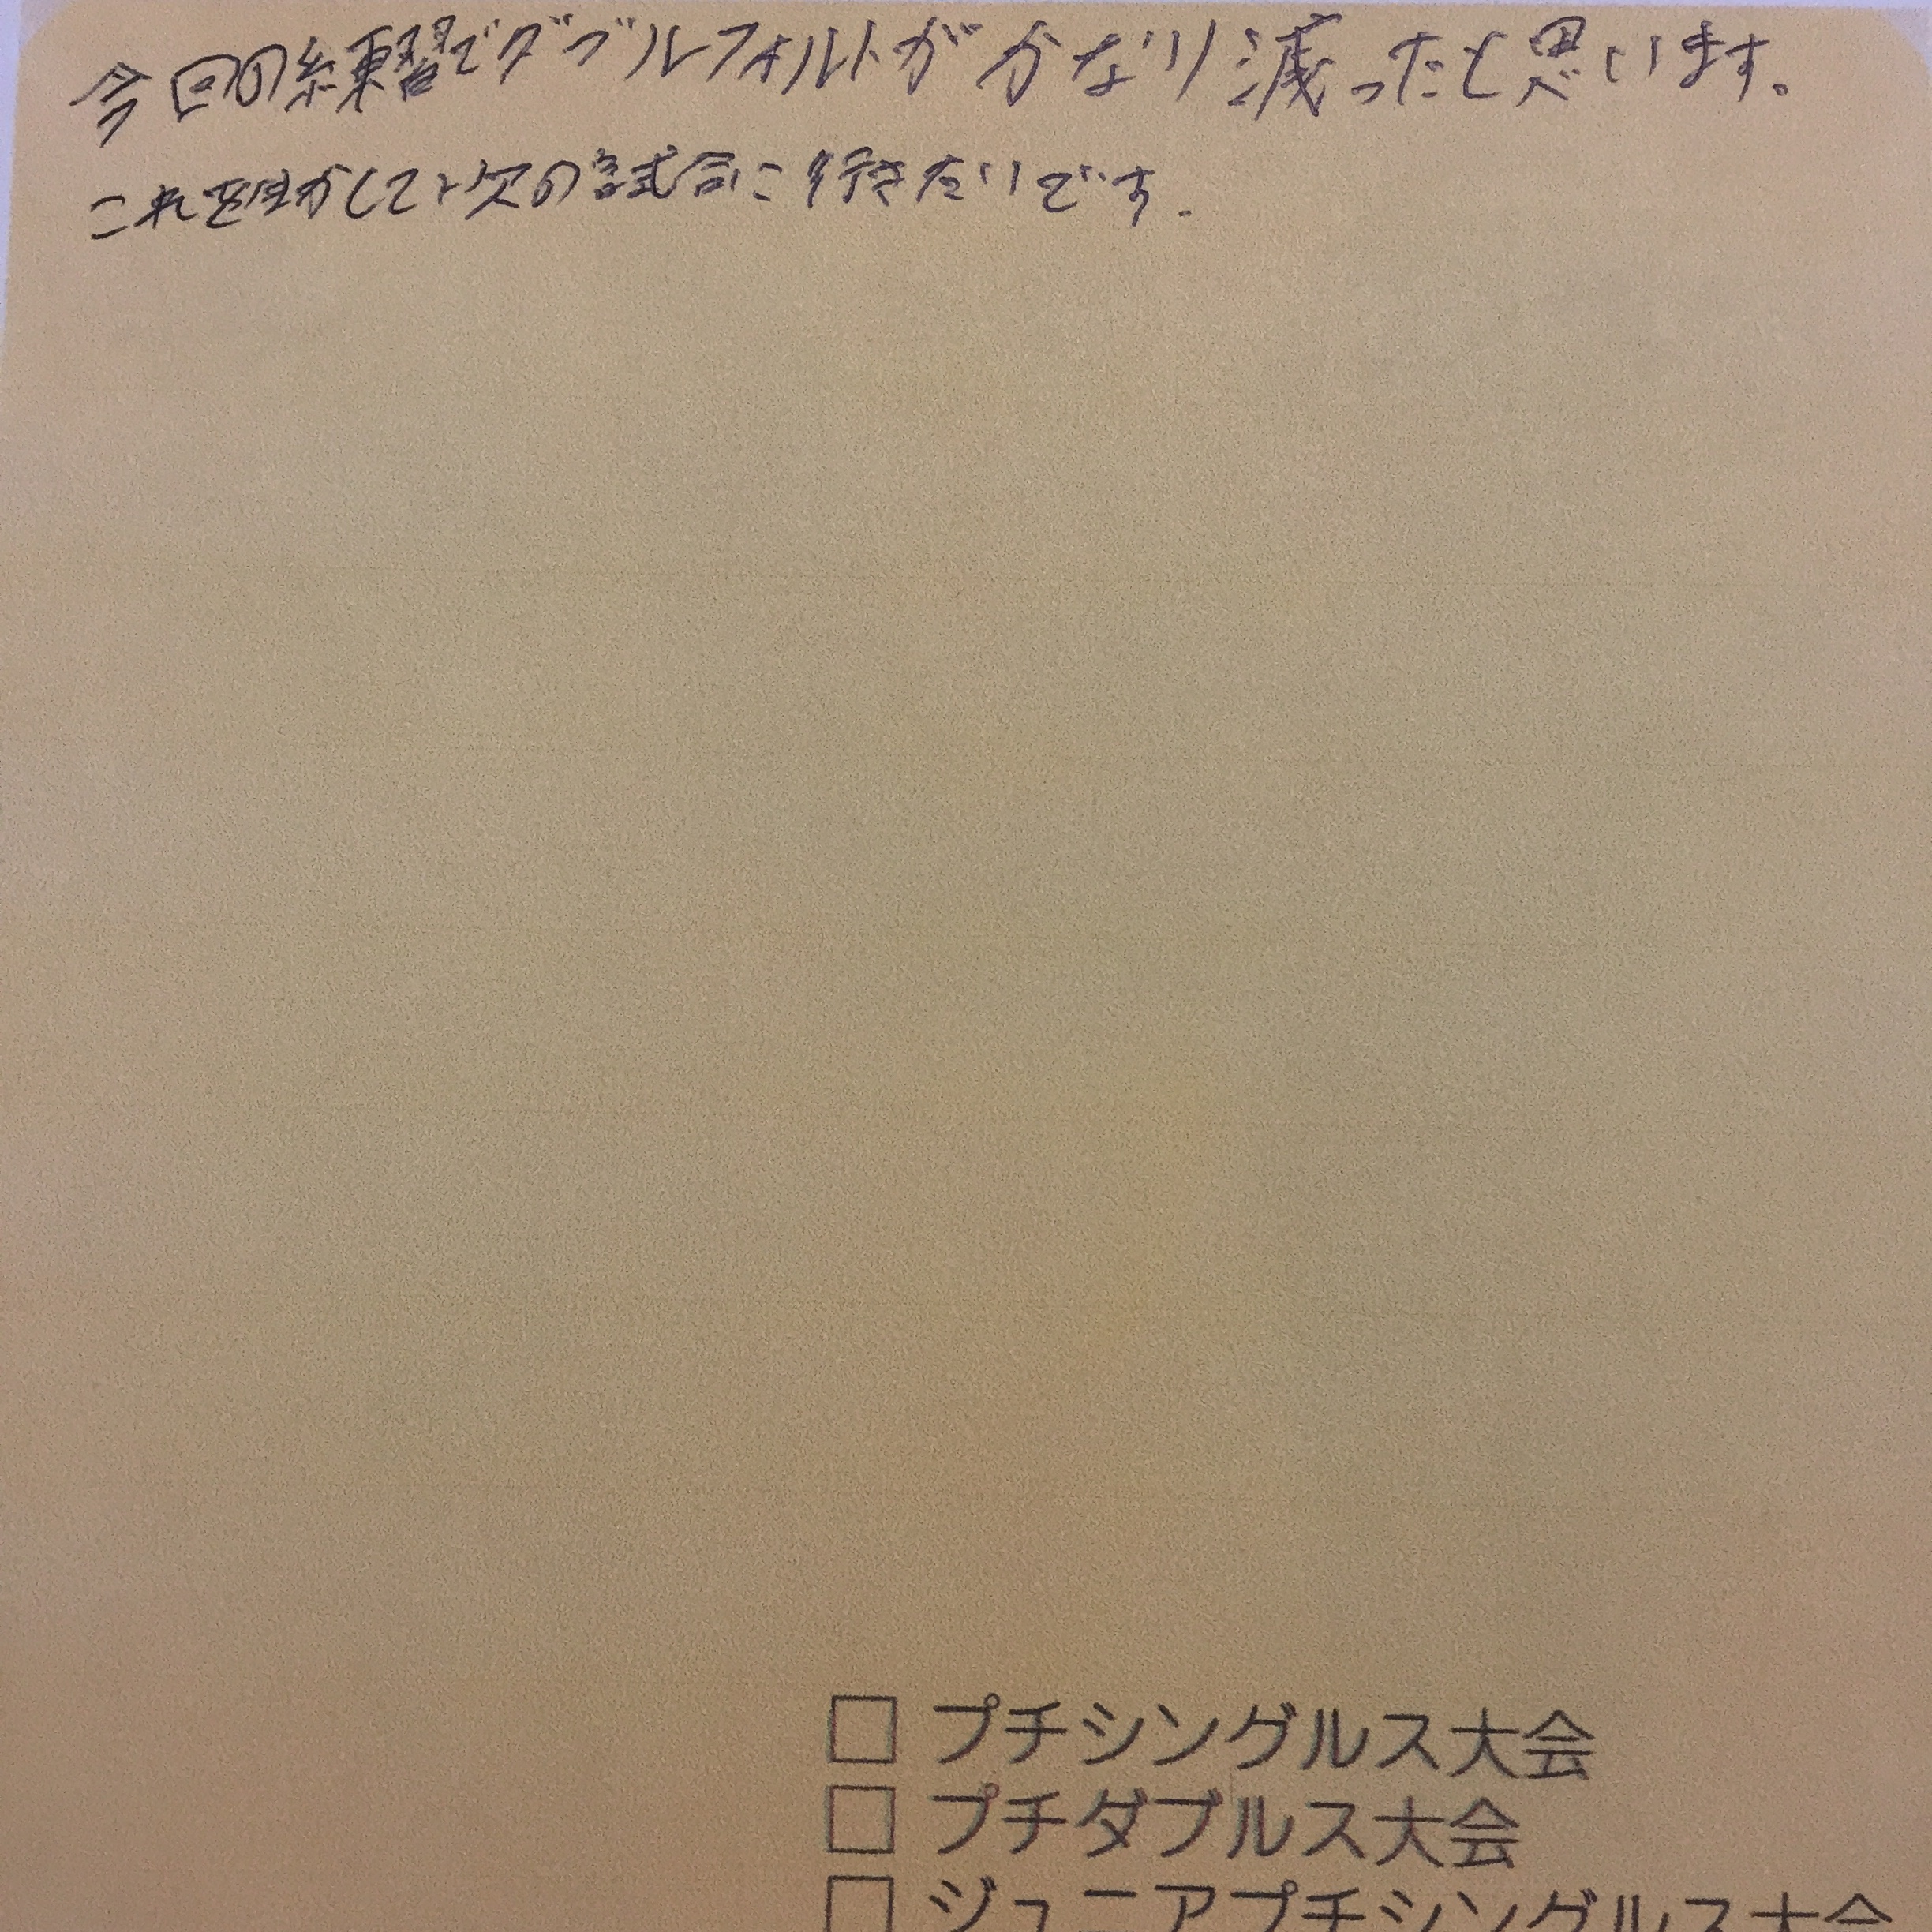 今回の練習でダブルフォルトがかなり減ったと思います。
これを生かして次の試合に行きたいです.
□ プチシングルス大会
□ プチダブルス大会
□ ジュニアプチシングルス大会